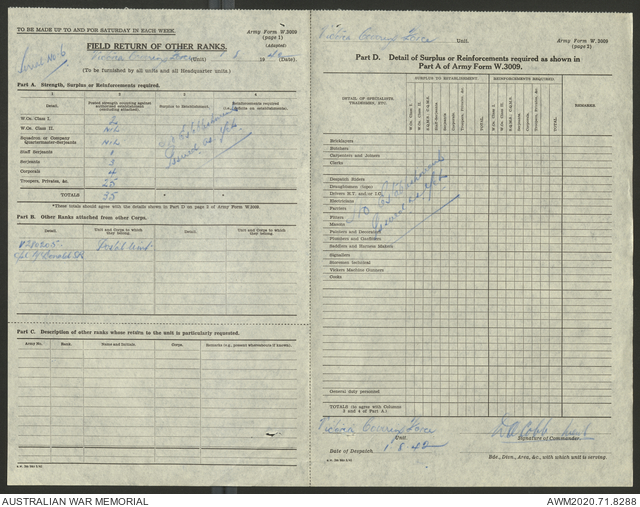 TO BE MADE UP TO AND FOR SATURDAY IN EACH WEEK.
Army Form W.3009
(page 1)
(Adapted)
Serial No 6
FIELD RETURN OF OTHER RANKS.
Victoria Covering Force (Unit)
19 (Date).
(To be furnished by all units and all Headquarter units.)
Part A. Strength, Surplus or Reinforcements required.
1 2 3 4
Detail.
Posted strength counting against authorized establishment (excluding attached).
Surplus to Establishment.
Reinforcements required
W.Os. Class I.
W.Os. Class II. NIL
Squadron or Company Quartermaster-Serjeants NIL
Staff Serjeants 1
Serjeants 3
Corporals 4
Troopers, Privates, &c. 25
TOTALS 35
No Establishment
Issued as yet.
*These totals should agree with the details shown in Part D on page 2 of Army Form W.3009.
Part B. Other Ranks attached from other Corps.
Detail.
Unit and Corps to which they belong.
Detail.
Unit and Corps to which they belong.
Postal Unit
Cpl McDonald
Part C. Description of other ranks whose return to the unit is particularly requested.
Army No.
Rank.
Name and Initials.
Corps.
Remarks (e.g., present whereabouts, if known).
Victoria Covering Force
Unit.
Army Form W.3009
(page 2)
Part D. Detail of Surplus or Reinforcements required as shown in
Part A of Army Form W.3009.
DETAIL OF SPECIALISTS, TRADESMEN, ETC.
SURPLUS TO ESTABLISHMENT.
REINFORCEMENTS REQUIRED.
REMARKS
W.Os. Class I.
W.Os. Class II.
Staff-Serjeants.
Serjeants.
Corporals.
Troopers, Privates, &c.
TOTAL.
W.Os. Class I.
W.Os. Class II.
Staff-Serjeants.
Serjeants.
Corporals.
Troopers, Privates, &c.
TOTAL.
Bricklayers
Butchers
Carpenters and Joiners
Clerks
Despatch Riders
Draughtsmen (topo)
Drivers M.T. and/or I.C.
Electricians
Farriers
Fitters
Masons
Painters and Decorators
Plumbers and Gasfitters
Saddlers and Harness Makers
Signallers
Storemen technical
Vickers Machine Gunners
Cooks
No Establishment
Issued as yet.
General duty personnel
TOTALS (to agree with Columns
3 and 4 of Part A.)
Victoria Covering Force
Unit.
Date of Despatch 1.8.42
Signature of Commander.
Bde., Divn., Area, &c., with which unit is serving.
AUSTRALIAN WAR MEMORIAL
AWM2020.71.8288